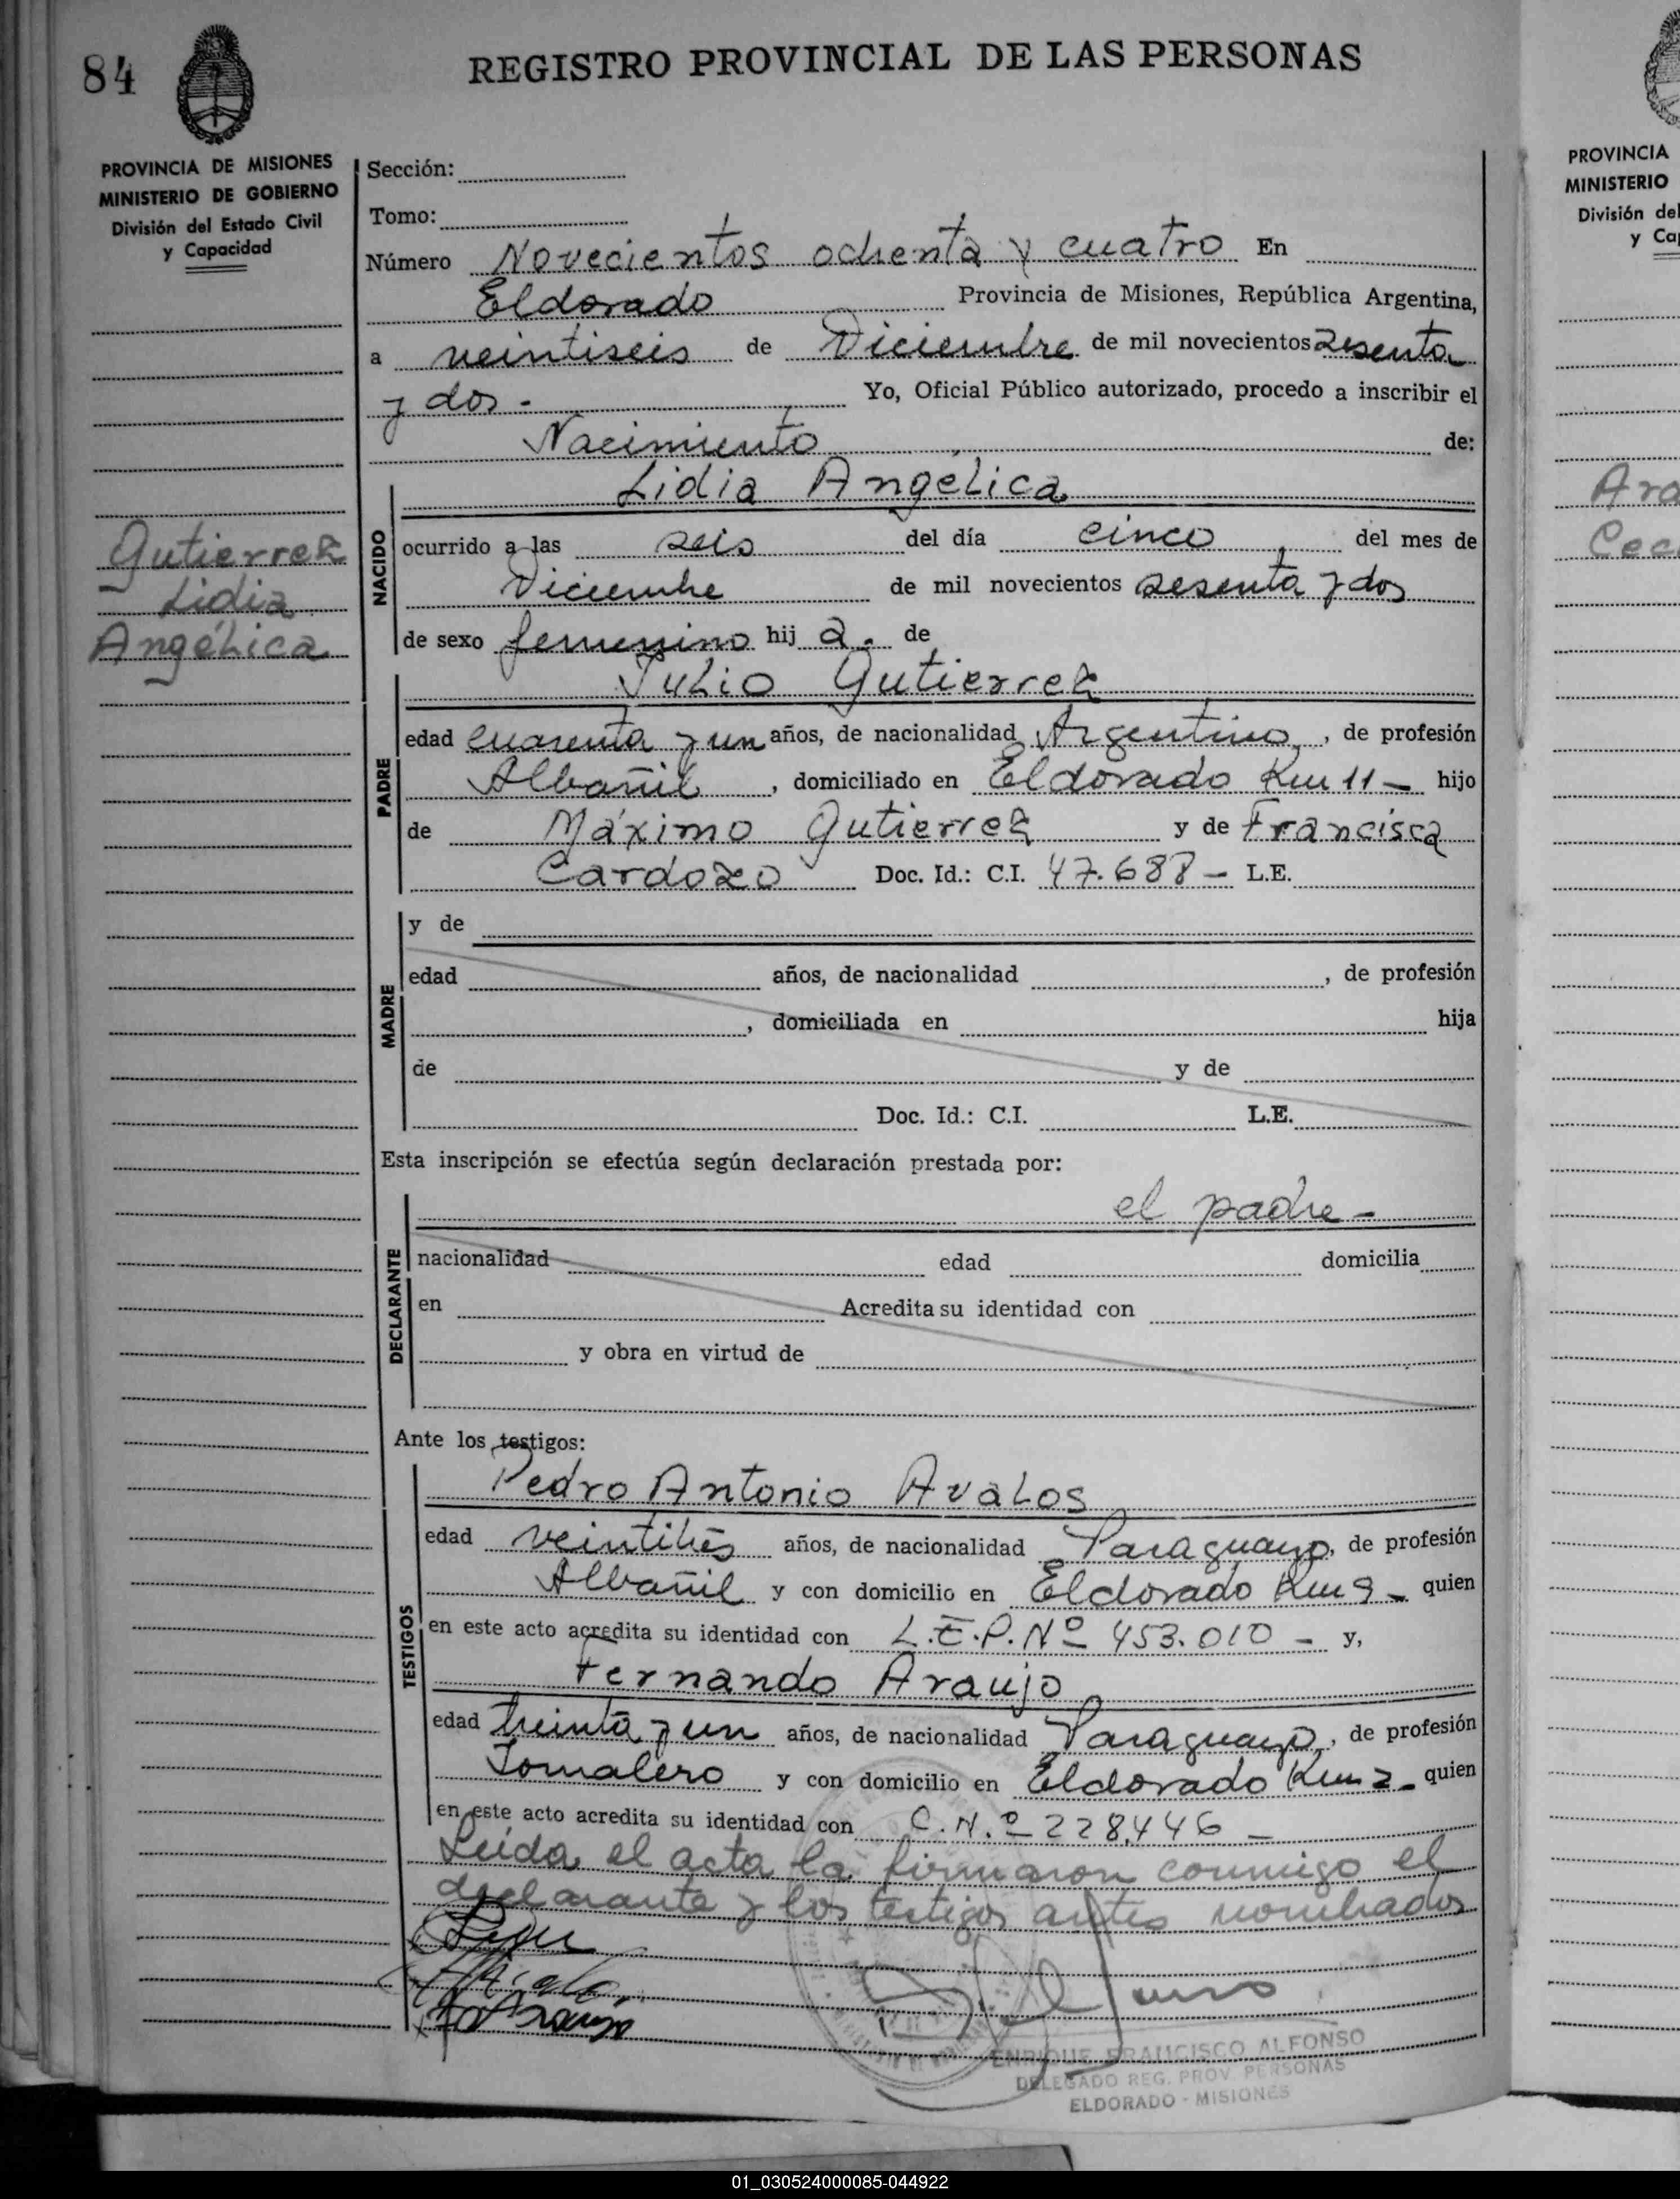 84
REGISTRO PROVINCIAL DE LAS PERSONAS
PROVINCIA DE MISIONES
MINISTERIO DE GOBIERNO
División del Estado Civil
y Capacidad
Gutierrez
Lidia
Angélica
Sección:
Tomo:
Número Novecientos ochenta y cuatro En
Eldorado Provincia de Misiones, República Argentina,
a veintiseis de Diciembre de mil novecientos sesenta
y dos - Yo, Oficial Público autorizado, procedo a inscribir el
Nacimiento de:
NACIDO
Lidia Angélica
ocurrido a las seis del día cinco del mes de
Diciembre de mil novecientos sesenta y dos
de sexo femenino hij a. de
PADRE
Julio Gutierrez
edad cuarenta y un años, de nacionalidad Argentino, de profesión
Albañil, domiciliado en Eldorado Km 11 - hijo
de Máximo Gutierrez y de Francisca
Cardozo Doc. Id.: C.I. 47.688 - L.E.
MADRE
y de
edad años, de nacionalidad , de profesión
, domiciliada en hija
de y de
Doc. Id.: C.I. L.E.
Esta inscripción se efectúa según declaración prestada por:
DECLARANTE
el padre -
nacionalidad edad domicilia
en Acredita su identidad con
y obra en virtud de
Ante los testigos:
TESTIGOS
Pedro Antonio Avalos
edad veintitrés años, de nacionalidad Paraguayo, de profesión
Albañil y con domicilio en Eldorado Km 9 - quien
en este acto acredita su identidad con L.E.P. Nº 453.010 - y,
Fernando Araujo
edad treinta y un años, de nacionalidad Paraguayo, de profesión
Jornalero y con domicilio en Eldorado Km 2 - quien
en este acto acredita su identidad con C.N.º 228.446 -
Leida el acta la firmaron conmigo el
declarante y los testigos antes nombrados
ENRIQUE FRANCISCO ALFONSO
DELEGADO REG. PROV. PERSONAS
ELDORADO - MISIONES
PROVINCIA
MINISTERIO
División del
y Ca
Ara
Cec
01_030524000085-044922